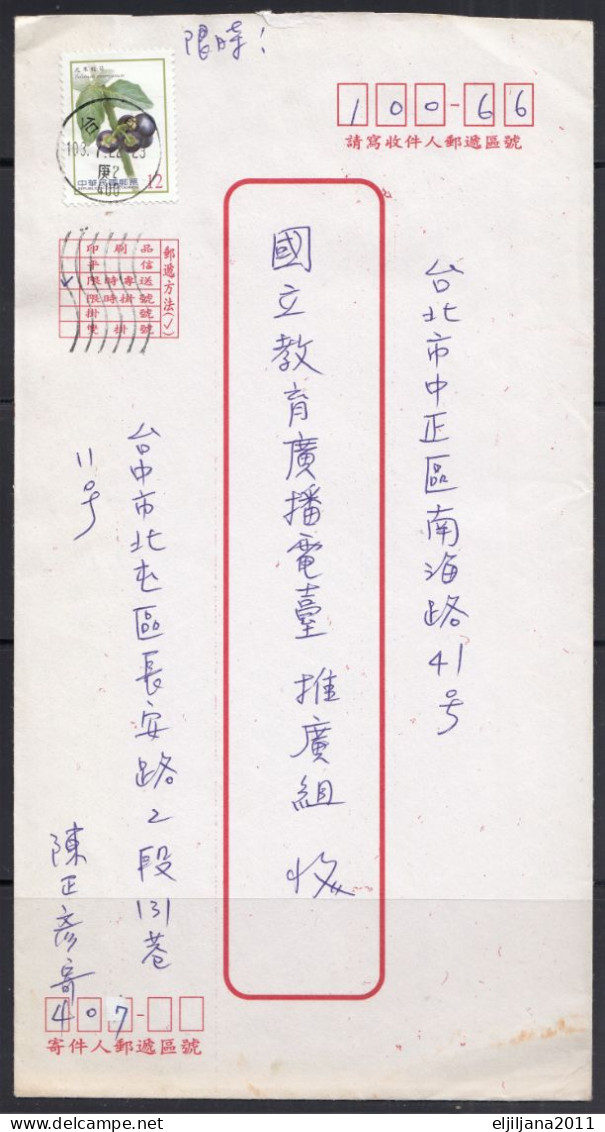 限時！
100-66
請寫收件人郵遞區號
中華民國郵票
12
台
103.
400
郵遞方法(✓)
印刷品
平信
限時專送
限時掛號
掛號
雙掛號
台北市中正區南海路41号
國立教育廣播電臺 推廣組 收
台中市北屯區長安路2段131巷
11号
陳正彥寄
407-
寄件人郵遞區號
eljiljana2011